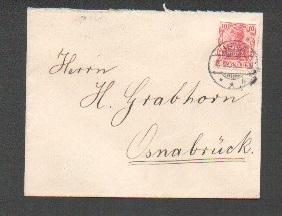 Herrn
H. Grabhorn
Osnabrück.
10 10